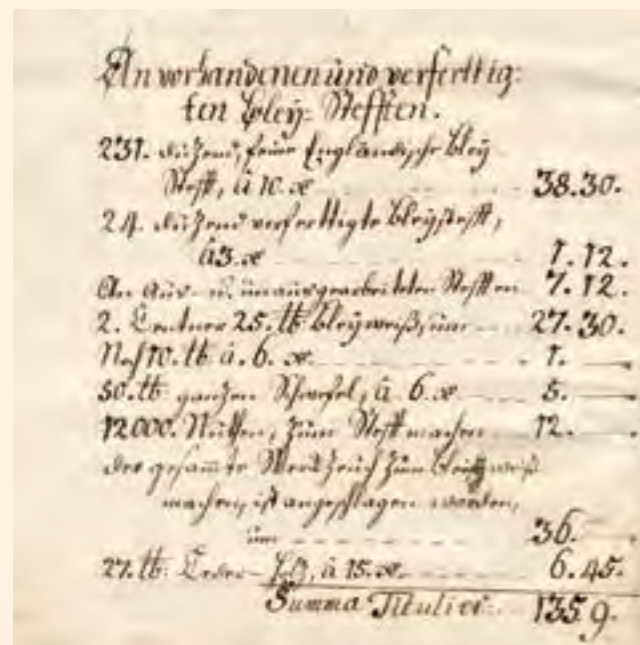 An vorhandenen und verfertig:
ten Bleÿ: Stefften.
231. duzend, feine Engländische Bleÿ
Stefft, â 10. x 38.30.
24. duzend verferttigte Bleÿstefft,
â 3. x 1.12.
An aus- u. unausgearbeiteten Stefften 7.12.
2. Centner 25. lb Bleÿweiß, um 27.30.
Noch 10. lb â. 6. x. 1. —
50. lb ganzen Schwefel, â 6. x 5. —
12000. Nutten, zum Stefft machen 12. —
der gesamte Werckzeuch zum Bleÿweiß
machen, ist angeschlagen worden,
um 36. —
27. lb Ceder-Holz, â 15. x. 6.45.
Summa Tituli 135 9.